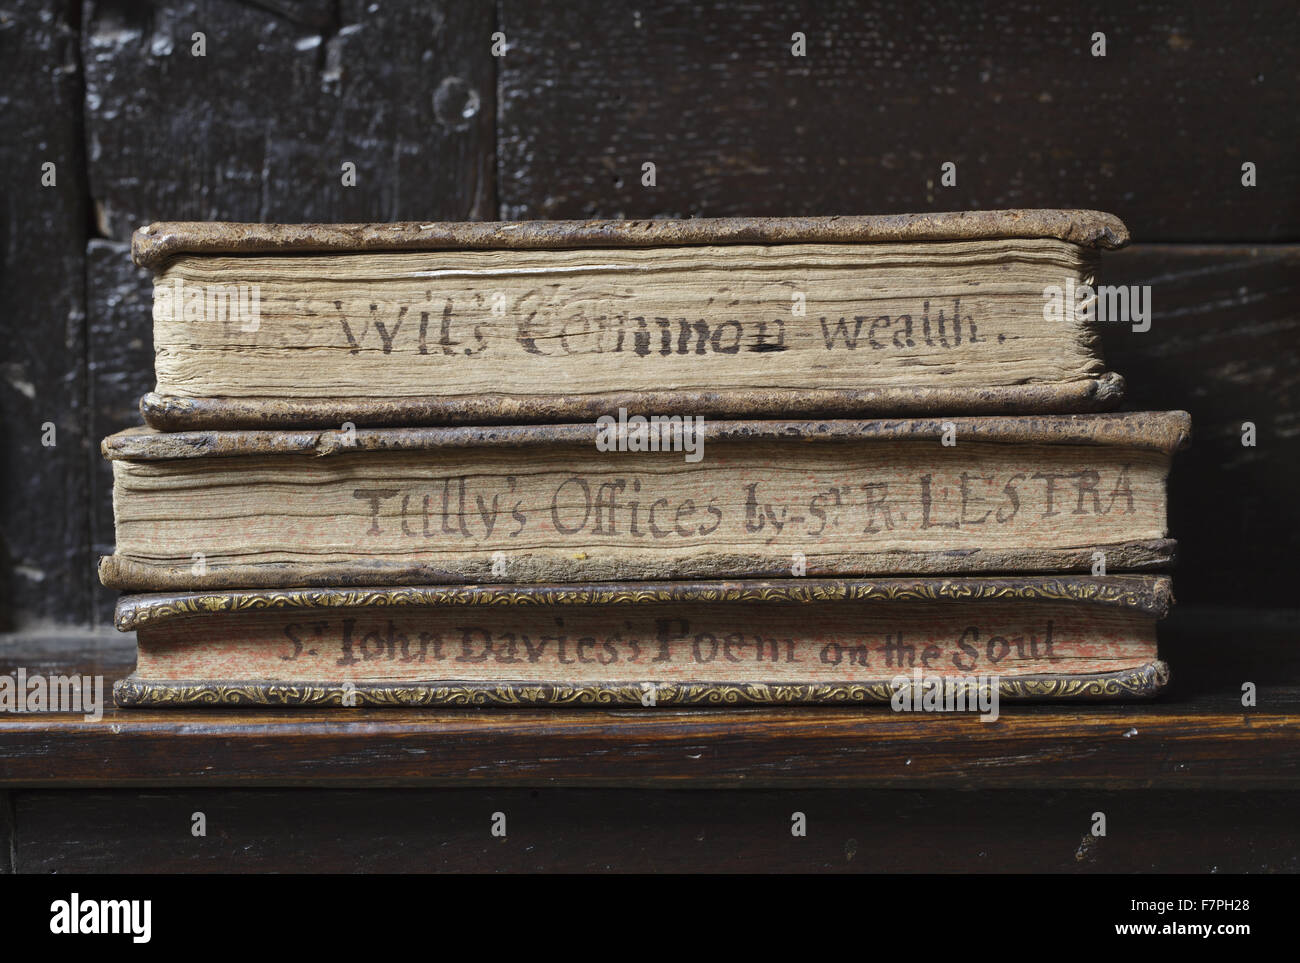 Wit's Common-wealth.
Tully's Offices by Sr. R. L'ESTRA
Sr. John Davies's Poem on the Soul
alamy stock photo
F7PH28
www.alamy.com